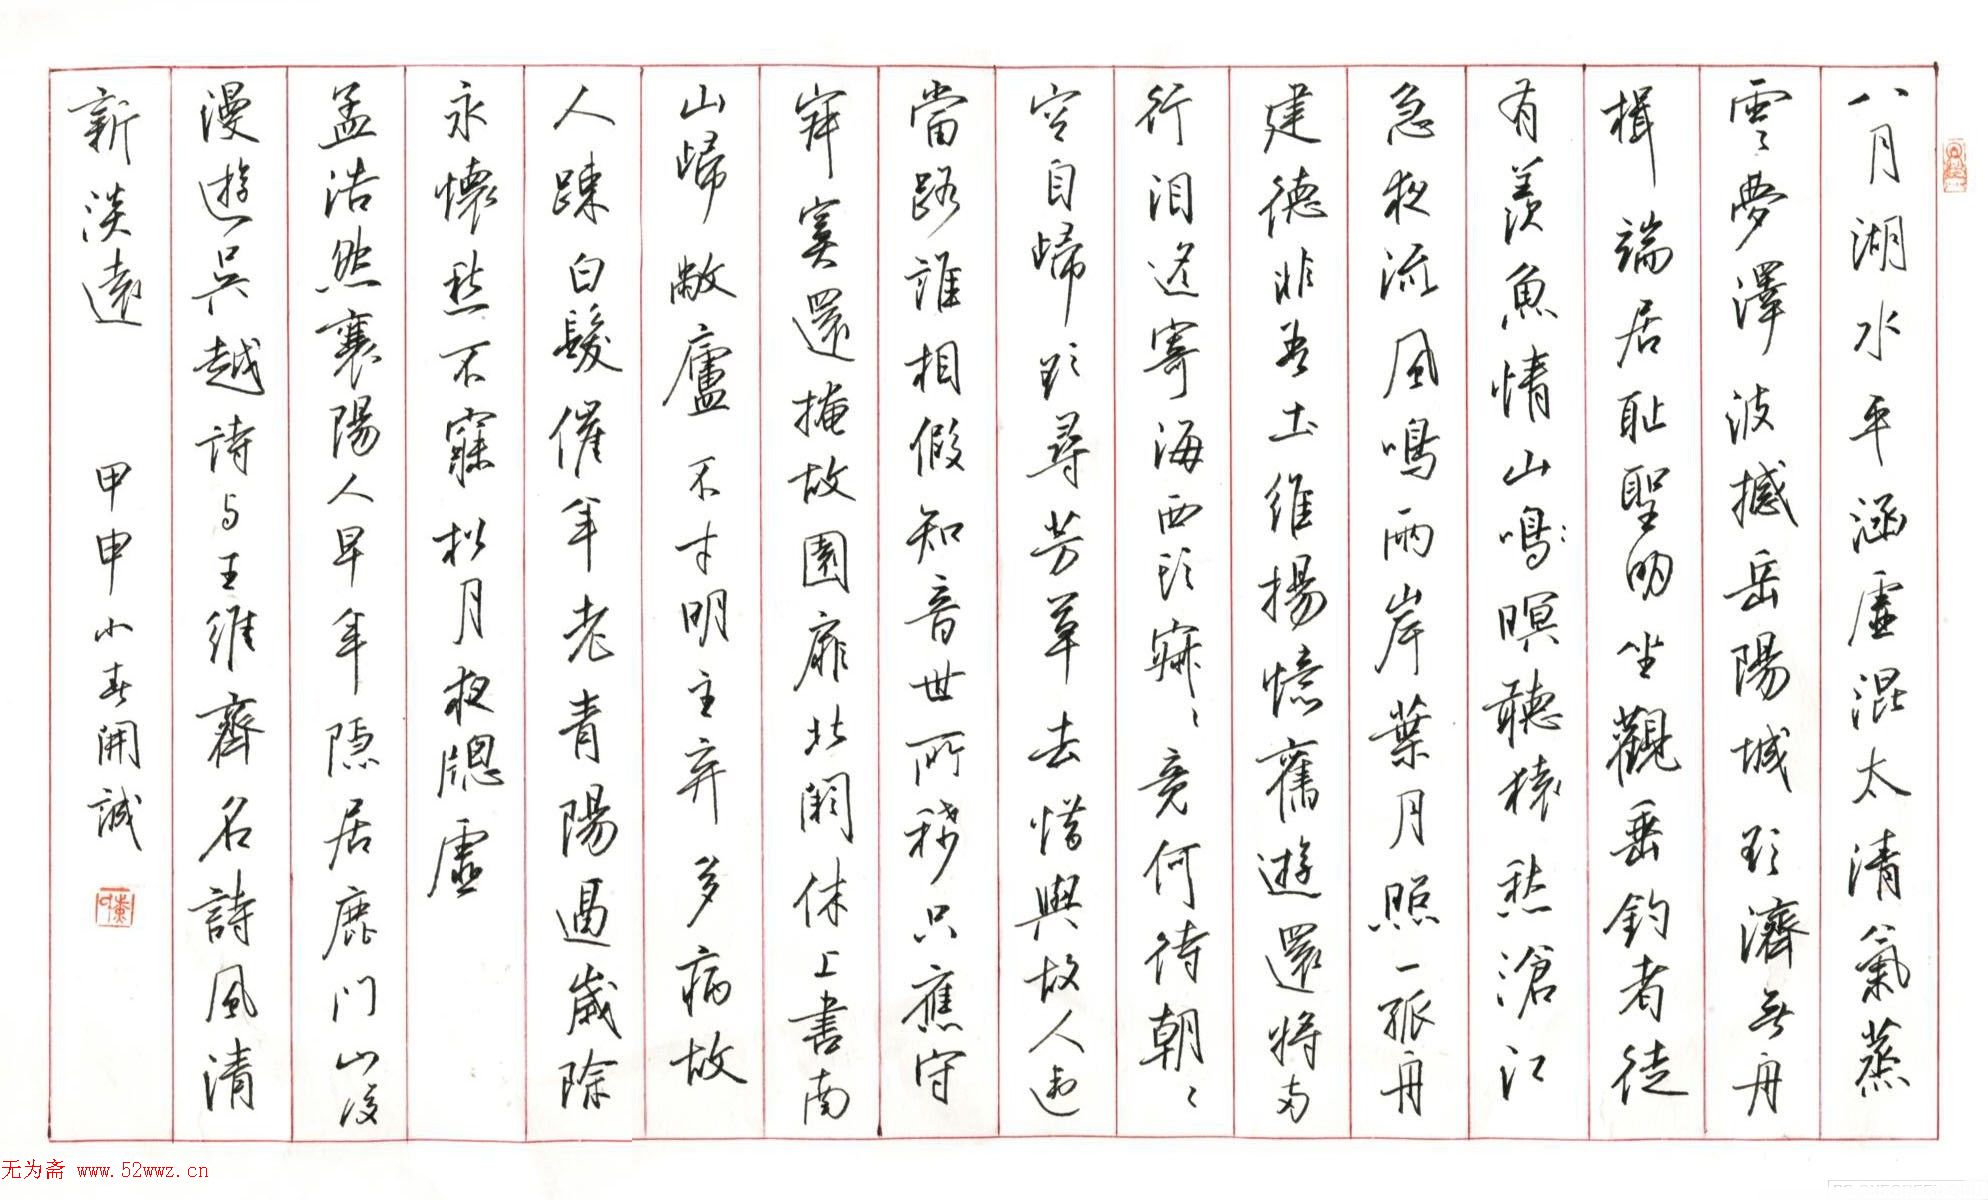 八月湖水平涵虛混太清氣蒸
雲夢澤波撼岳陽城欲濟無舟
楫端居耻聖明坐觀垂釣者徒
有羨魚情山鳴暝聽猿愁滄江
急夜流風鳴兩岸葉月照一孤舟
建德非吾土維揚憶舊遊還將兩
行泪遙寄海西頭寂〻竟何待朝〻
空自歸欲尋芳草去惜與故人違
當路誰相假知音世所稀只應守
寂寞還掩故園扉北闕休上書南
山歸敝廬不才明主弃多病故
人踈白髮催年老青陽逼歲除
永懷愁不寐松月夜牎虛
孟浩然襄陽人早年隱居鹿门山後
漫遊吳越詩与王維齊名詩風清
新淡遠 甲申小春開誠
无为斋 www.52wwz.cn